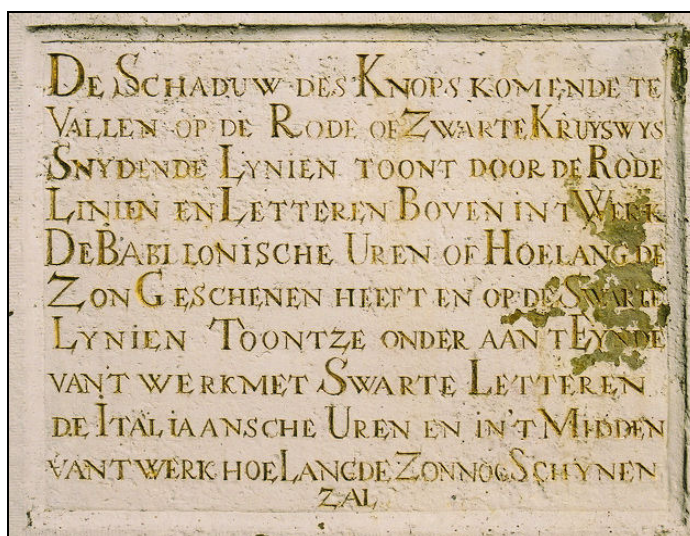 DE SCHADUW DES KNOPS KOMENDE TE
VALLEN OP DE RODE OF ZWARTE KRUYSWYS
SNYDENDE LYNIEN TOONT DOOR DE RODE
LINIEN EN LETTEREN BOVEN IN T WERK
DE BABILONISCHE UREN OF HOELANG DE
ZON GESCHENEN HEEFT EN OP DE SWARTE
LYNIEN TOONTZE ONDER AAN T EYNDE
VANT WERK MET SWARTE LETTEREN
DE ITALIAANSCHE UREN EN IN'T MIDDEN
VANT WERK HOE LANG DE ZON NOG SCHYNEN
ZAL